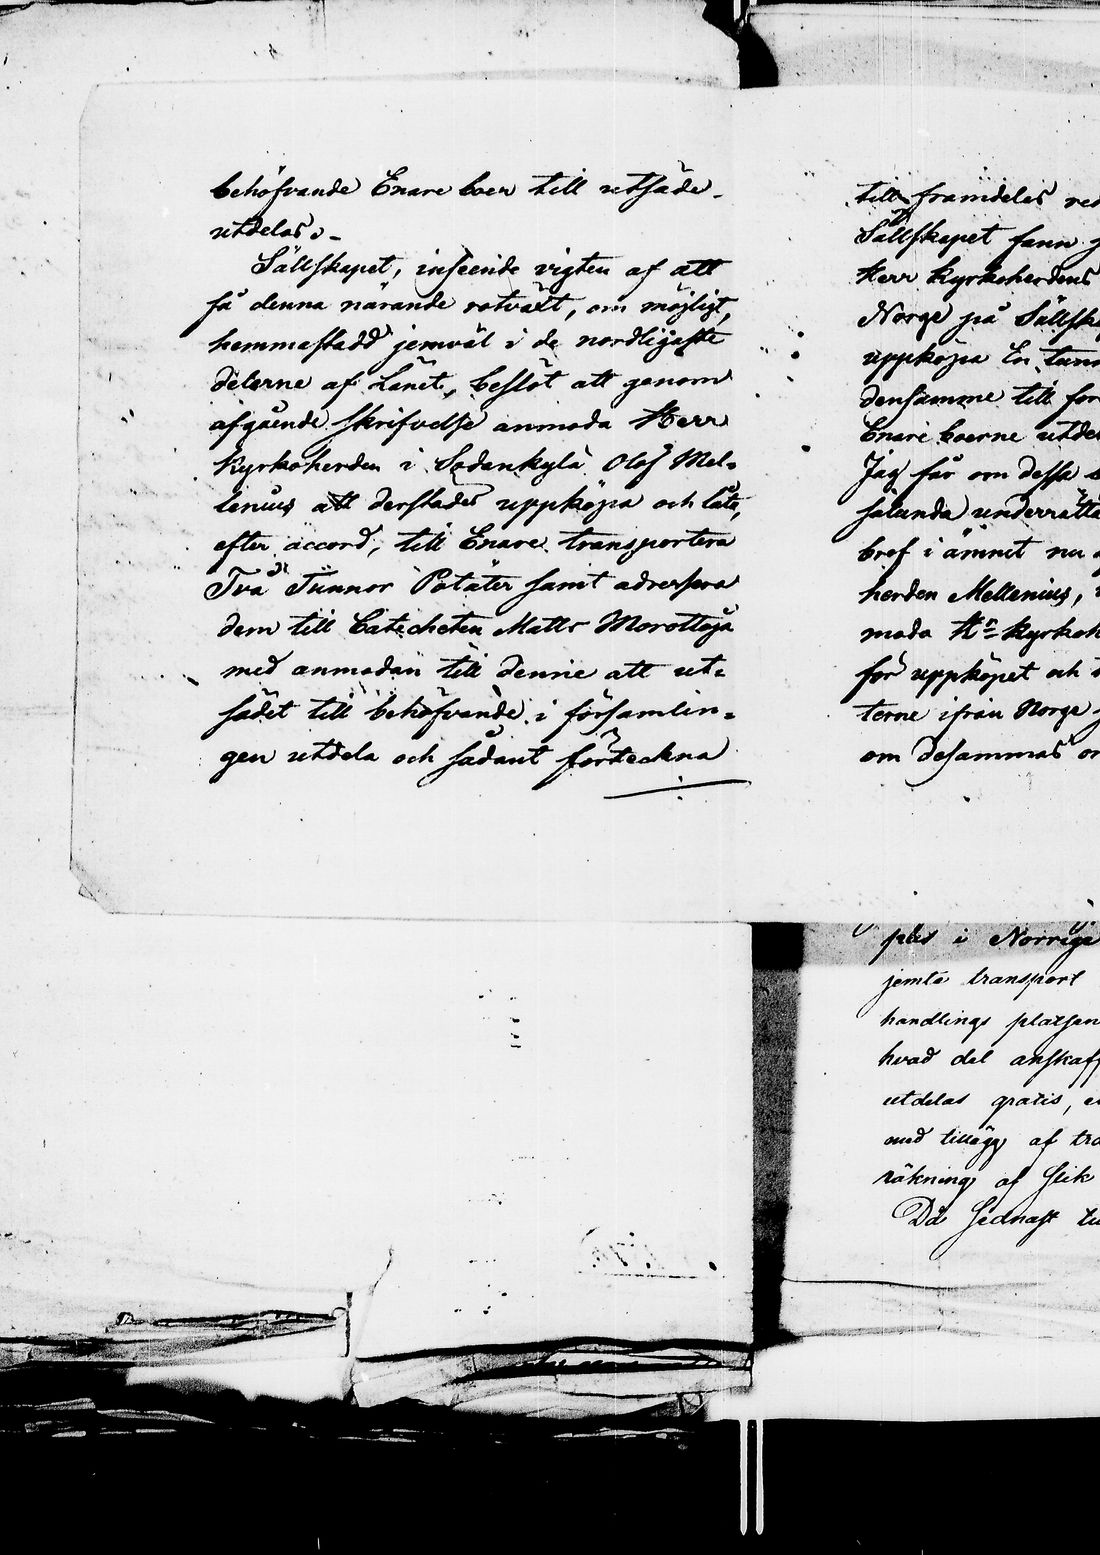 behöfvande Enare boer till utsäde
utdelas.
Sällskapet, inseende vigten af att
få denna närande rotväxt, om möjligt,
hemmastadd jemväl i de nordligaste
delerne af Länet, beslöt att genom
afgående skrifvelse anmoda Herr
Kyrkoherden i Sodankylä Olof Mel=
lenius att derstädes uppköpa och låta,
efter accord, till Enare transportera
Två Tunnor Potäter samt adressera
dem till Catecheten Matts Morottaja
med anmodan till denne att ut=
sädet till behöfvande i församlin=
gen utdela och sådant förteckna
till framdeles
Sällskapet fann
Herr Kyrkoherdens
Norge på Sällsk
uppköpa En tunn
densamme till för
Enare boerne utde
Jag får om dessa
sålunda underrätta
bref i ämnet nu
herden Mellenius,
moda Hr Kyrkoh
för uppköpet och
terne ifrån Norge
om desammas
plås i Norrige
jemte transport
handlings platsen
hvad del anskaff
utdelas gratis,
med tillägg af tra
räkning af slik
Då sednast